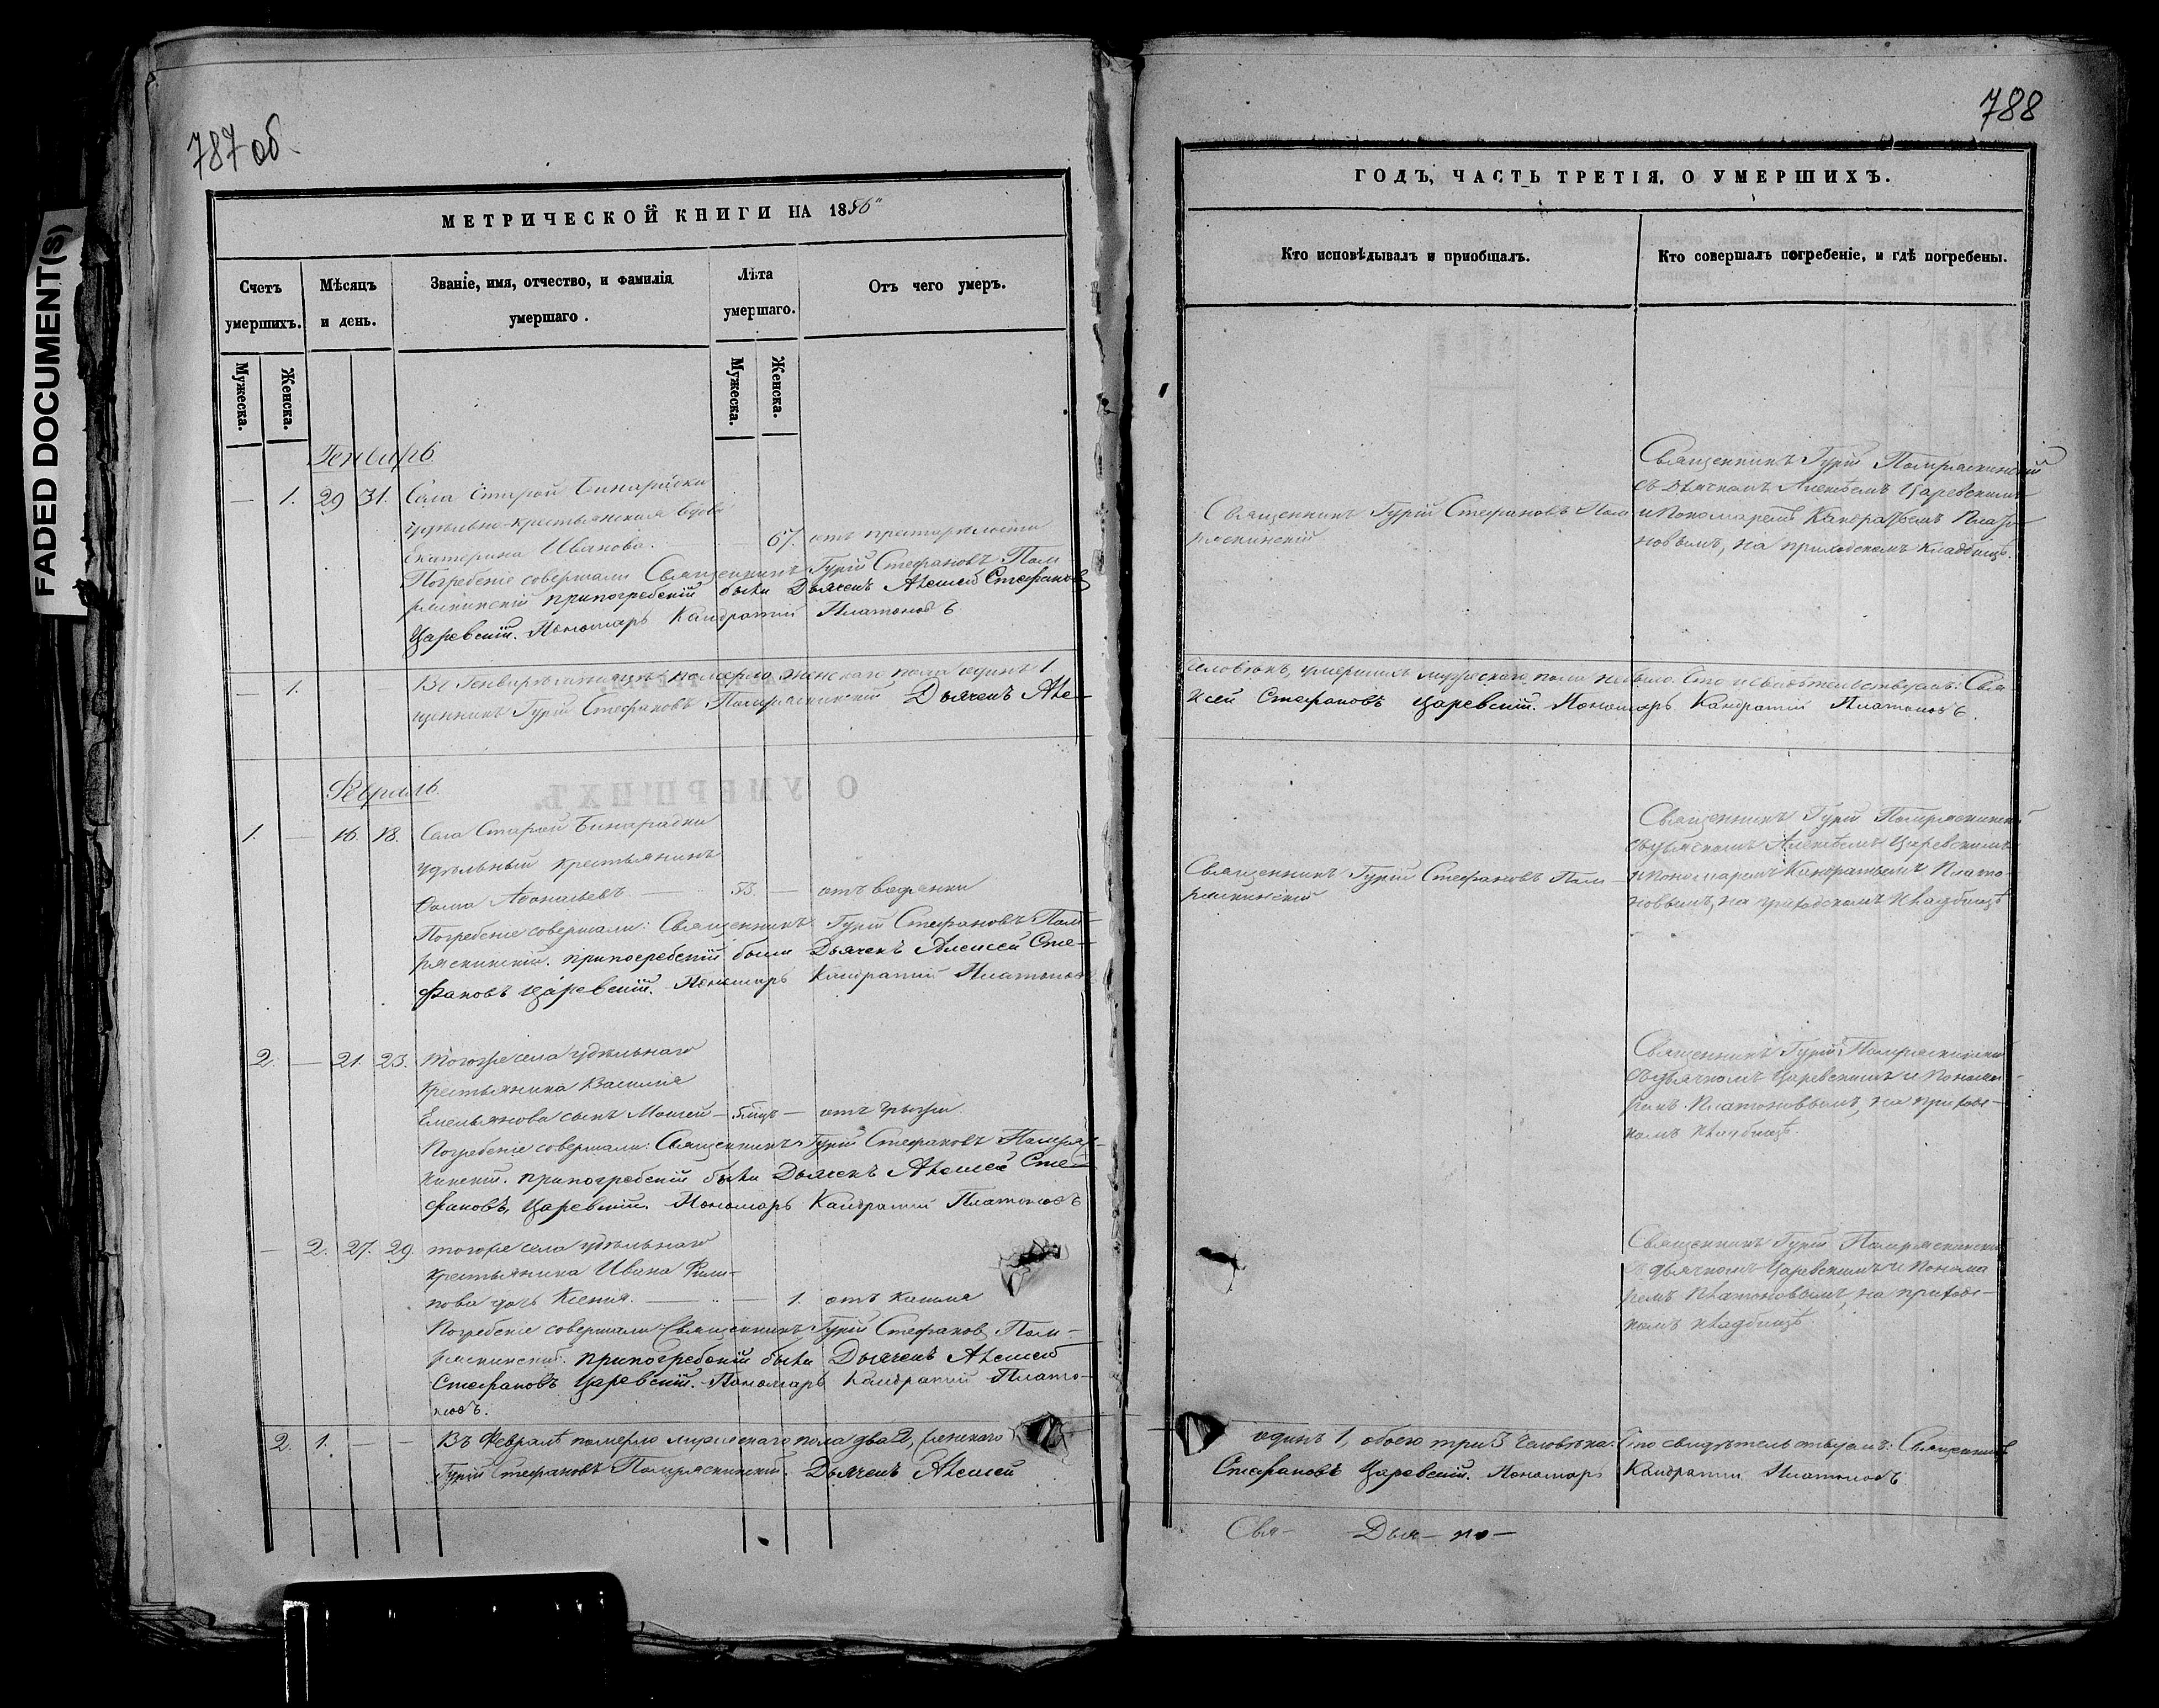 FADED DOCUMENT(S)
787 об
МЕТРИЧЕСКОЙ КНИГИ НА 1856
Счетъ
умершихъ.
Мѣсяцъ
и день.
Званіе, имя, отчество, и фамилія
умершаго.
Лѣта
умершаго.
Отъ чего умеръ.
Мужеска.
Женска.
Мужеска.
Женска.
Генварь
— 1. 29 31. Села Старой Бинарадки
удѣльно-крестьянская вдова
Екатерина Иванова. 67. отъ престарѣлости
Погребеніе совершали Священникъ Гурій Стефановъ Пом
ряскинскій припогребеніи были Дьячекъ Алексей Стефановъ
Царевскій. Пономарь Кандратій Платоновъ
— 1. — — Въ Генварѣ мѣсяцѣ померло женскаго пола одинъ 1
щенникъ Гурій Стефановъ Помряскинскій Дьячекъ Але-
Февраль
1. — 16. 18. Села Старой Бинарадки
удѣльный крестьянинъ
Фома Афонасьевъ — 53. — отъ водянки
Погребеніе совершали: Священникъ Гурій Стефановъ Пом-
ряскинскій. припогребеніи были Дьячекъ Алексей Сте-
фановъ Царевскій. Пономарь Кандратій Платоновъ
2. — 21. 23. тогоже села удѣльнаго
крестьянина Василія
Емельянова сынъ Моисей — 5 мцъ — отъ грыжи
Погребеніе совершали: Священникъ Гурій Стефановъ Помряс-
кинскій. припогребеніи были Дьячекъ Алексей Сте-
фановъ, Царевскій. Пономарь Кандратій Платоновъ
— 2. 27. 29. тогоже села удѣльнаго
крестьянина Ивана Фили-
пова дочь Ксенія. — — 1. отъ кашля
Погребеніе совершали Священникъ Гурій Стефановъ Пом-
ряскинскій. припогребеніи были Дьячекъ Алексей
Стефановъ Царевскій. Пономарь Кандратій Плато-
новъ.
2. 1. — — Въ Февралѣ померло мужескаго пола два 2, женскаго
Гурій Стефановъ Помряскинскій. Дьячекъ Алексей
788
ГОДЪ, ЧАСТЬ ТРЕТІЯ, О УМЕРШИХЪ.
Кто исповѣдывалъ и пріобщалъ.
Кто совершалъ погребеніе, и гдѣ погребены.
Священникъ Гурій Стефановъ Пом
ряскинскій
Священникъ Гурій Помряскинскій
съ дьячкомъ Алексѣемъ Царевскимъ
и Пономаремъ Кандратьемъ Плато
новымъ, на приходскомъ кладбищѣ.
человѣкъ, умершихъ мужескаго пола небыло. Сто и свидѣтельствуемъ: Свя
ксей Стефановъ Царевскій. Пономарь Кандратій Платоновъ.
Священникъ Гурій Стефановъ Пом-
ряскинскій
Священникъ Гурій Помряскинскій
съ дьячкомъ Алексѣемъ Царевскимъ
и пономаремъ Кандратьемъ Плато
новымъ, на приходскомъ кладбищѣ
Священникъ Гурій Помряскинскій
съ дьячкомъ Царевскимъ и Понома-
ремъ Платоновымъ, на приходс-
комъ кладбищѣ.
Священникъ Гурій Помряскинскій
съ дьячкомъ Царевскимъ и Понома
ремъ Платоновымъ, на приходс-
комъ кладбищѣ.
одинъ 1, обоего три 3 человѣка. Сто свидѣтельствуемъ: Священникъ
Стефановъ Царевскій. Пономарь Кандратій Платоновъ
Свя- Дья- по-